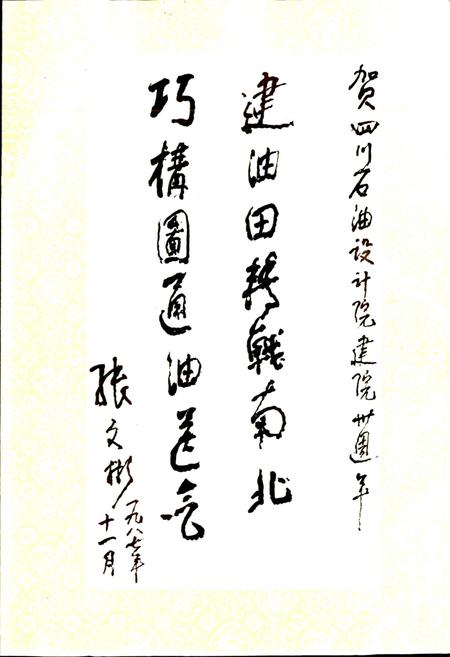 贺四川石油设计院建院卅週年
建油田轉戰南北
巧構圖通油送气
张文彬
一九八七年
十一月